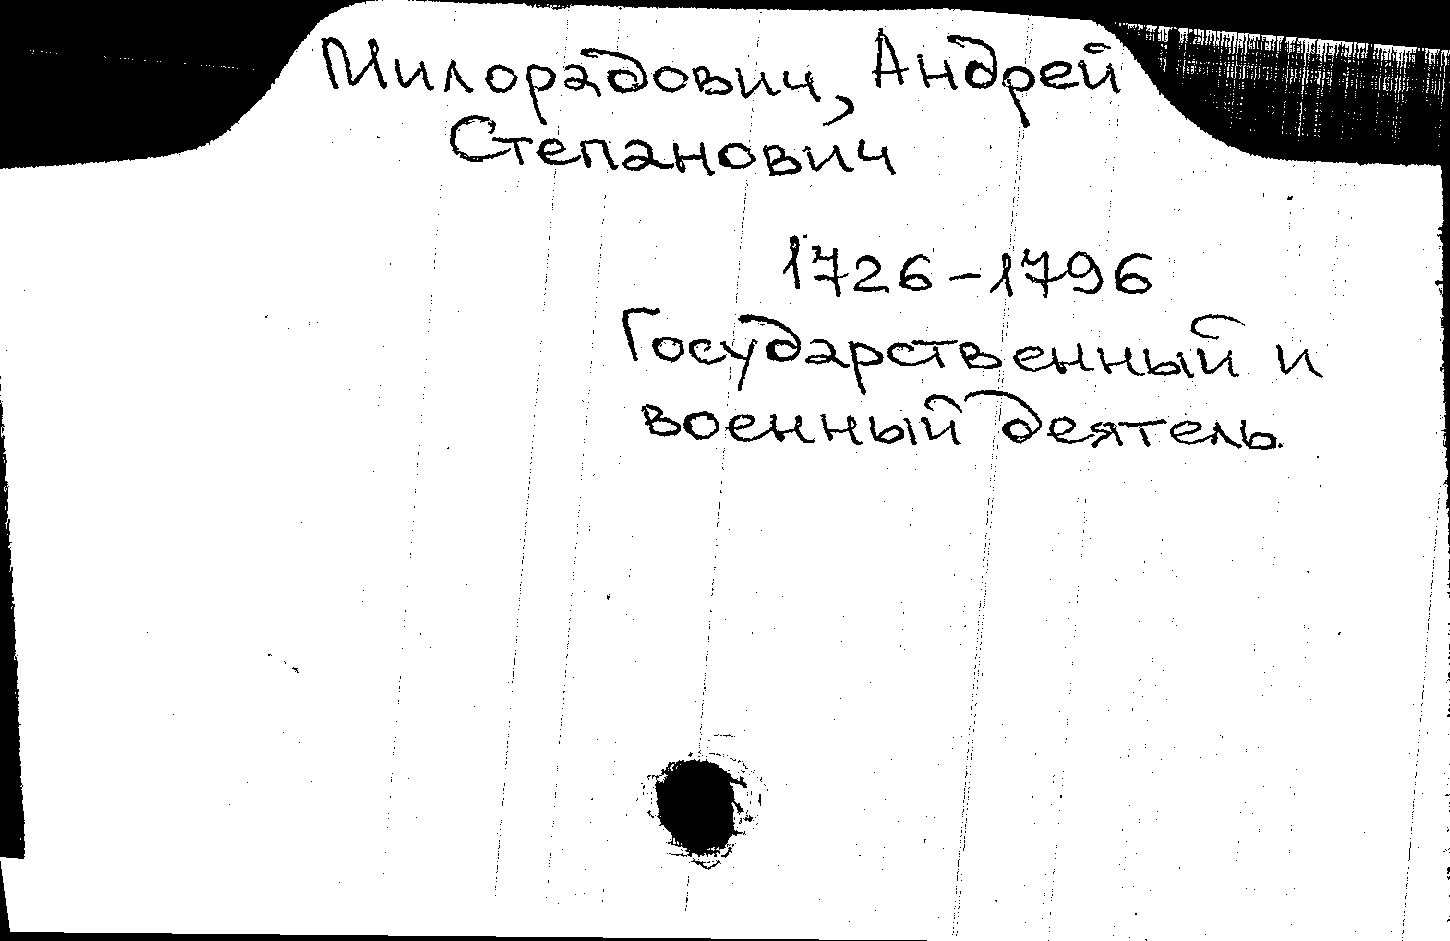 Милорадович, Андрей
Степанович
1726-1796
Государственный и
военный деятель.